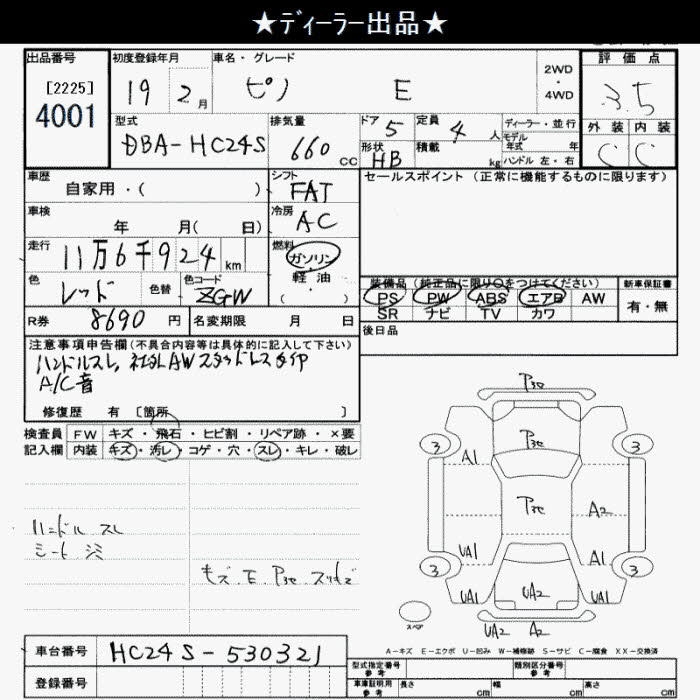 ★ディーラー出品★
出品番号 初度登録年月 車名・グレード 2WD・4WD 評価点
[2225] 19 2月 ピノ E 3.5
4001
型式 排気量 ドア 5 定員 4人 ディーラー・並行 外装 内装
DBA-HC24S 660cc 形状 HB 積載 kg モデル年式 年 ハンドル 左・右 C C
車歴 自家用・( ) シフト FAT セールスポイント (正常に機能するものに限ります)
車検 年 月( 日) 冷房 AC
走行 11万6千924km 燃料 ガソリン・軽油 ( )
色 レッド 色替 色コード ZGW
装備品 (純正品に限り○をつけてください) 新車保証書
PS PW ABS エアB AW 有・無
SR ナビ TV カワ
R券 8690円 名変期限 月 日 後日品
注意事項申告欄(不具合内容等は具体的に記入して下さい)
ハンドルスレ, 社外AWスタッドレスタイヤ
A/C音
修復歴 有 [箇所 ]
検査員 FW キズ・飛石・ヒビ割・リペア跡・×要
記入欄 内装 キズ・汚レ・コゲ・穴・スレ・キレ・破レ
ハンドル スレ
シート シミ
キズ. E. P3c
P3c
3 P3c 3
A1
P3c A2
UA1 A1
3 3
UA1 UA2 UA1
スペア UA2 A2
A-キズ E-エクボ U-凹み W-補修跡 S-サビ C-腐食 XX-交換済
車台番号 HC24S-530321
型式指定番号 参考 類別区分番号 参考
登録番号
車庫証明用 参考 長さ cm 幅 cm 高さ cm